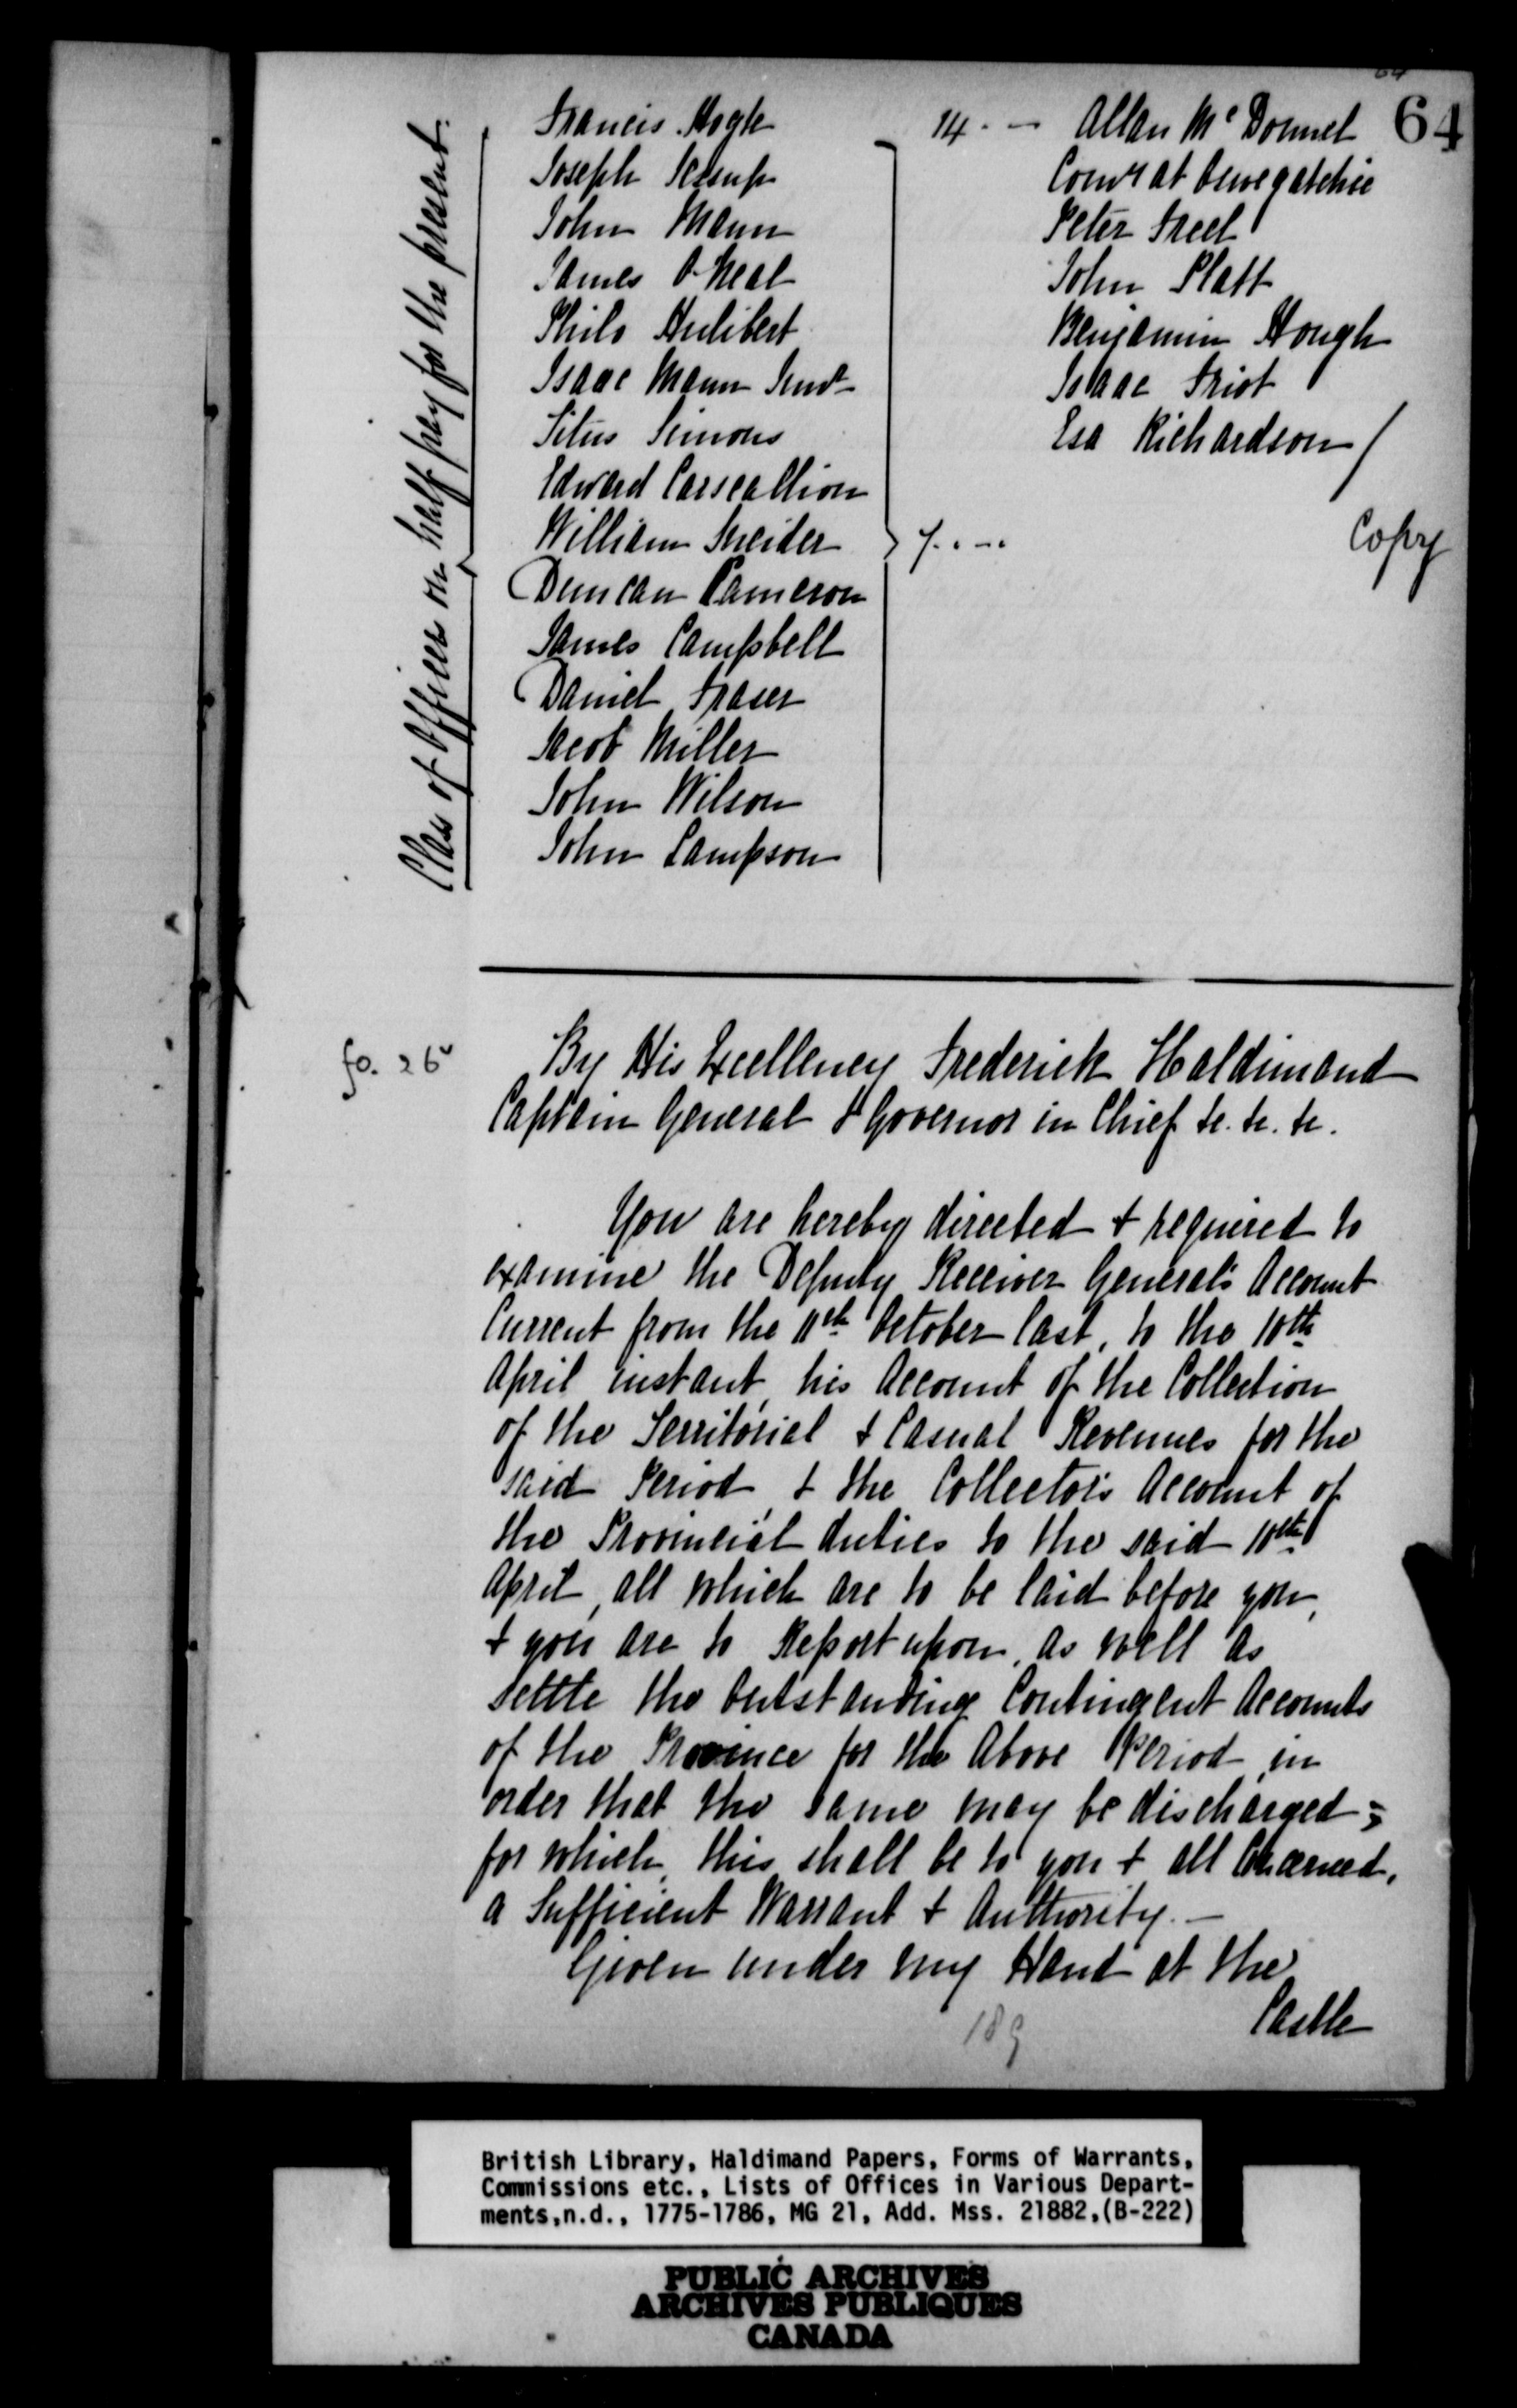 64
Class of Officers on half pay for the present.
Francis Hogle
Joseph Jessup
John Mann
James O Neal
Philo Hulibert
Isaac Mann Junr
Titus Simons
Edward Carscallion
William Sneider
Duncan Cameron
James Campbell
Daniel Fraser
Jacob Miller
John Wilson
John Sampson
14 . - Allan McDonnel
Comr at Oswegatchie
Peter Freel
John Platt
Benjamin Hough
Isaac Friot
Esa Richardson /
Copy
fo. 26v
By His Excellency Frederick Haldimand
Captain General & Governor in Chief &c. &c. &c.
You are hereby directed & required to
examine the Deputy Receiver General's Account
Current from the 11th October last, to the 10th
April instant, his Account of the Collection
of the Territorial & Casual Revenues for the
said Period, & the Collector's Account of
the Provincial duties to the said 10th
April, all which are to be laid before you,
& you are to Report upon, as well as
settle the Outstanding Contingent Accounts
of the Province for the above Period, in
order that the same may be discharged;
for which, this shall be to you & all Concerned,
a Sufficient Warrant & Authority. —
Given under my Hand at the
Castle
189
British Library, Haldimand Papers, Forms of Warrants,
Commissions etc., Lists of Offices in Various Depart-
ments,n.d., 1775-1786, MG 21, Add. Mss. 21882,(B-222)
PUBLIC ARCHIVES
ARCHIVES PUBLIQUES
CANADA